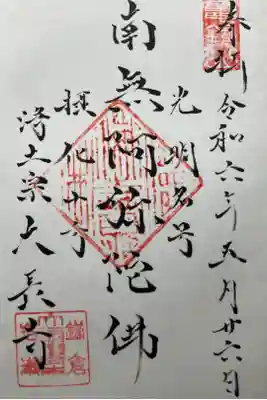 奉拝 令和六年五月廿六日
光明名号
南無阿弥陀佛
摂化十方
浄土宗大長寺
鎌倉